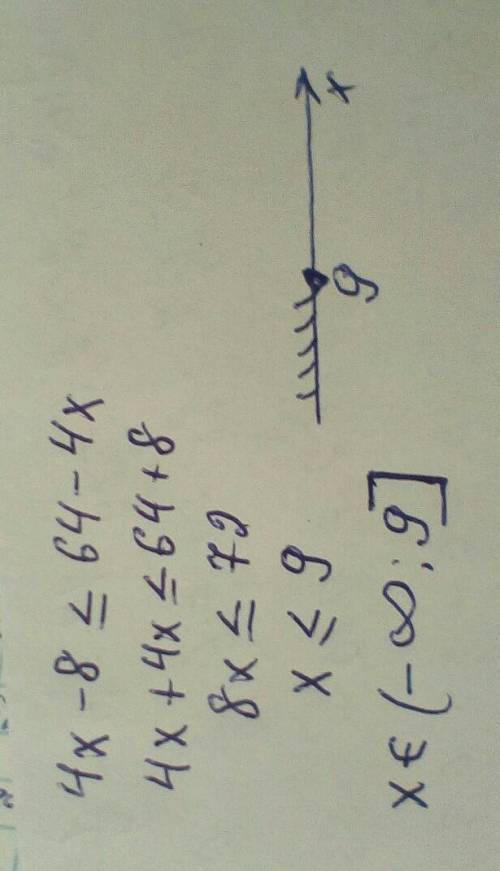 4x - 8 ≤ 64 - 4x
4x + 4x ≤ 64 + 8
8x ≤ 72
x ≤ 9
9
x
x ∈ (-∞; 9]